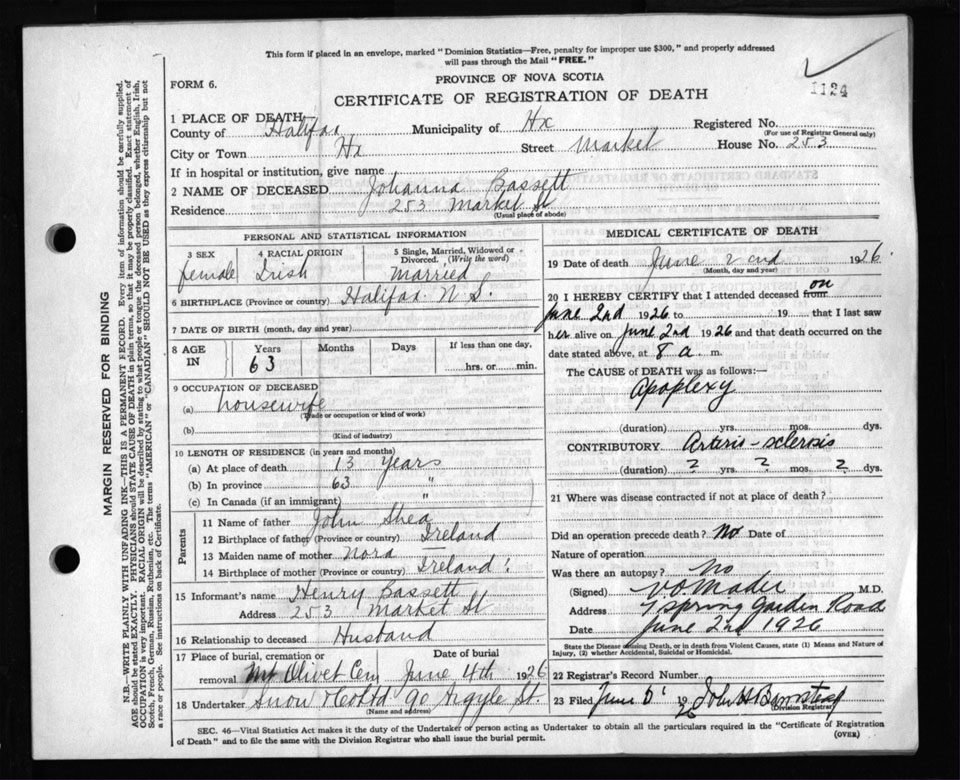 This form if placed in an envelope, marked "Dominion Statistics—Free, penalty for improper use $300," and properly addressed
will pass through the Mail "FREE."
1124
PROVINCE OF NOVA SCOTIA
FORM 6.
CERTIFICATE OF REGISTRATION OF DEATH
1 PLACE OF DEATH
County of Halifax Municipality of Hx Registered No.
(For use of Registrar General only)
City or Town Hx Street Market House No. 253
If in hospital or institution, give name
2 NAME OF DECEASED Johanna Bassett
Residence 253 Market St
(Usual place of abode)
PERSONAL AND STATISTICAL INFORMATION
3 SEX 4 RACIAL ORIGIN 5 Single, Married, Widowed or
Divorced. (Write the word)
female Irish Married
6 BIRTHPLACE (Province or country) Halifax N.S.
7 DATE OF BIRTH (month, day and year)
8 AGE IN Years Months Days If less than one day,
63 hrs. or min.
9 OCCUPATION OF DECEASED
(a) housewife
(Trade or occupation or kind of work)
(b)
(Kind of industry)
10 LENGTH OF RESIDENCE (in years and months)
(a) At place of death 13 Years
(b) In province 63 "
(c) In Canada (if an immigrant) "
Parents
11 Name of father John Shea
12 Birthplace of father (Province or country) Ireland
13 Maiden name of mother Nora —
14 Birthplace of mother (Province or country) Ireland
15 Informant's name Henry Bassett
Address 253 Market St
16 Relationship to deceased Husband
17 Place of burial, cremation or Date of burial
removal Mt Olivet Cem June 4th 1926
18 Undertaker Snow & Co Ltd 90 Argyle St.
(Name and address)
MEDICAL CERTIFICATE OF DEATH
19 Date of death June 2nd 1926
(Month, day and year)
20 I HEREBY CERTIFY that I attended deceased from on
June 2nd 1926 to 19 that I last saw
her alive on June 2nd 1926 and that death occurred on the
date stated above, at 8 a m.
The CAUSE of DEATH was as follows:—
Apoplexy
(duration) yrs. mos. dys.
CONTRIBUTORY Arterio-sclerosis
(duration) ? yrs. ? mos. ? dys.
21 Where was disease contracted if not at place of death?
Did an operation precede death? No Date of
Nature of operation
Was there an autopsy? No
(Signed) V O Mader M.D.
Address 7 Spring Garden Road
Date June 2nd 1926
State the Disease Causing Death, or in death from Violent Causes, state (1) Means and Nature of
Injury, (2) whether Accidental, Suicidal or Homicidal.
22 Registrar's Record Number
23 Filed June 5 1926 John H
Division Registrar
SEC. 46—Vital Statistics Act makes it the duty of the Undertaker or person acting as Undertaker to obtain all the particulars required in the "Certificate of Registration
of Death" and to file the same with the Division Registrar who shall issue the burial permit.
(OVER)
MARGIN RESERVED FOR BINDING
N.B.—WRITE PLAINLY WITH UNFADING INK—THIS IS A PERMANENT RECORD. Every item of information should be carefully supplied.
AGE should be stated EXACTLY. PHYSICIANS should STATE CAUSE OF DEATH in plain terms, so that it may be properly classified. Exact statement of
OCCUPATION is very important. RACIAL ORIGIN will be described by stating to what people or tongue the deceased person belonged, whether English, Irish,
Scotch, French, German, Russian, Ruthenian, etc. The terms "AMERICAN" or "CANADIAN" SHOULD NOT BE USED as they express citizenship but not
a race or people. See instructions on back of Certificate.